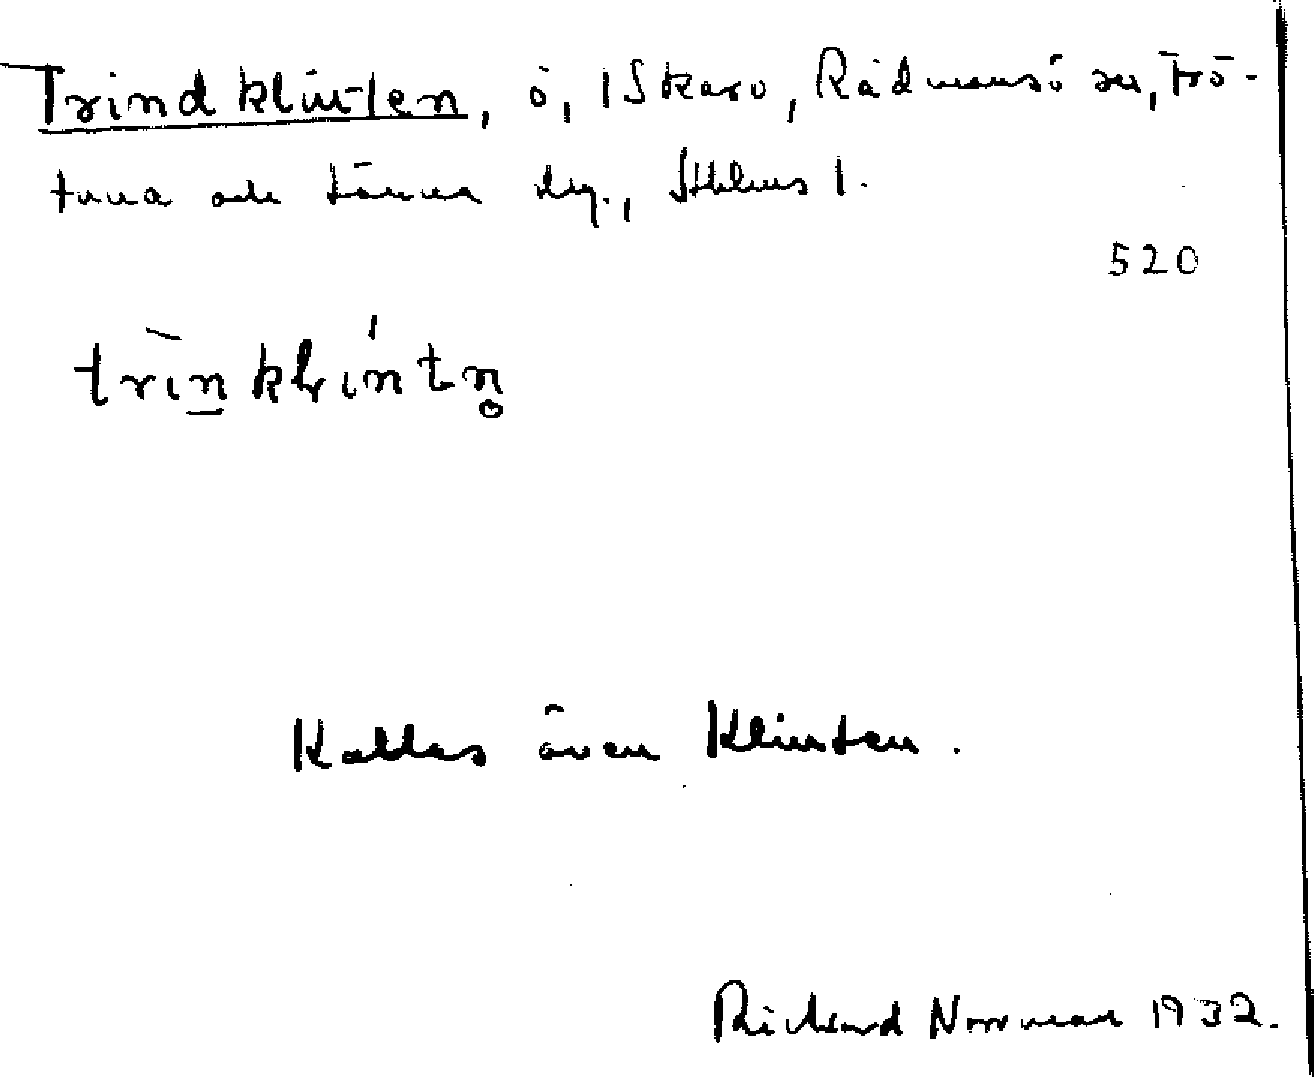 Trindklinten, ö, 1 Skarv, Rådmansö sn, Frö-
tuna och Länna skg., Sthlms l.
520
trìnklíntn̥
Kallas även Klinten.
Rickard Norrman 1932.